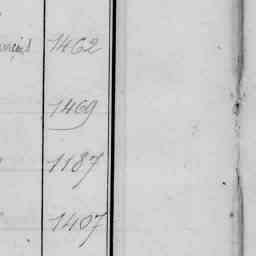 1462
1469
1187
1407